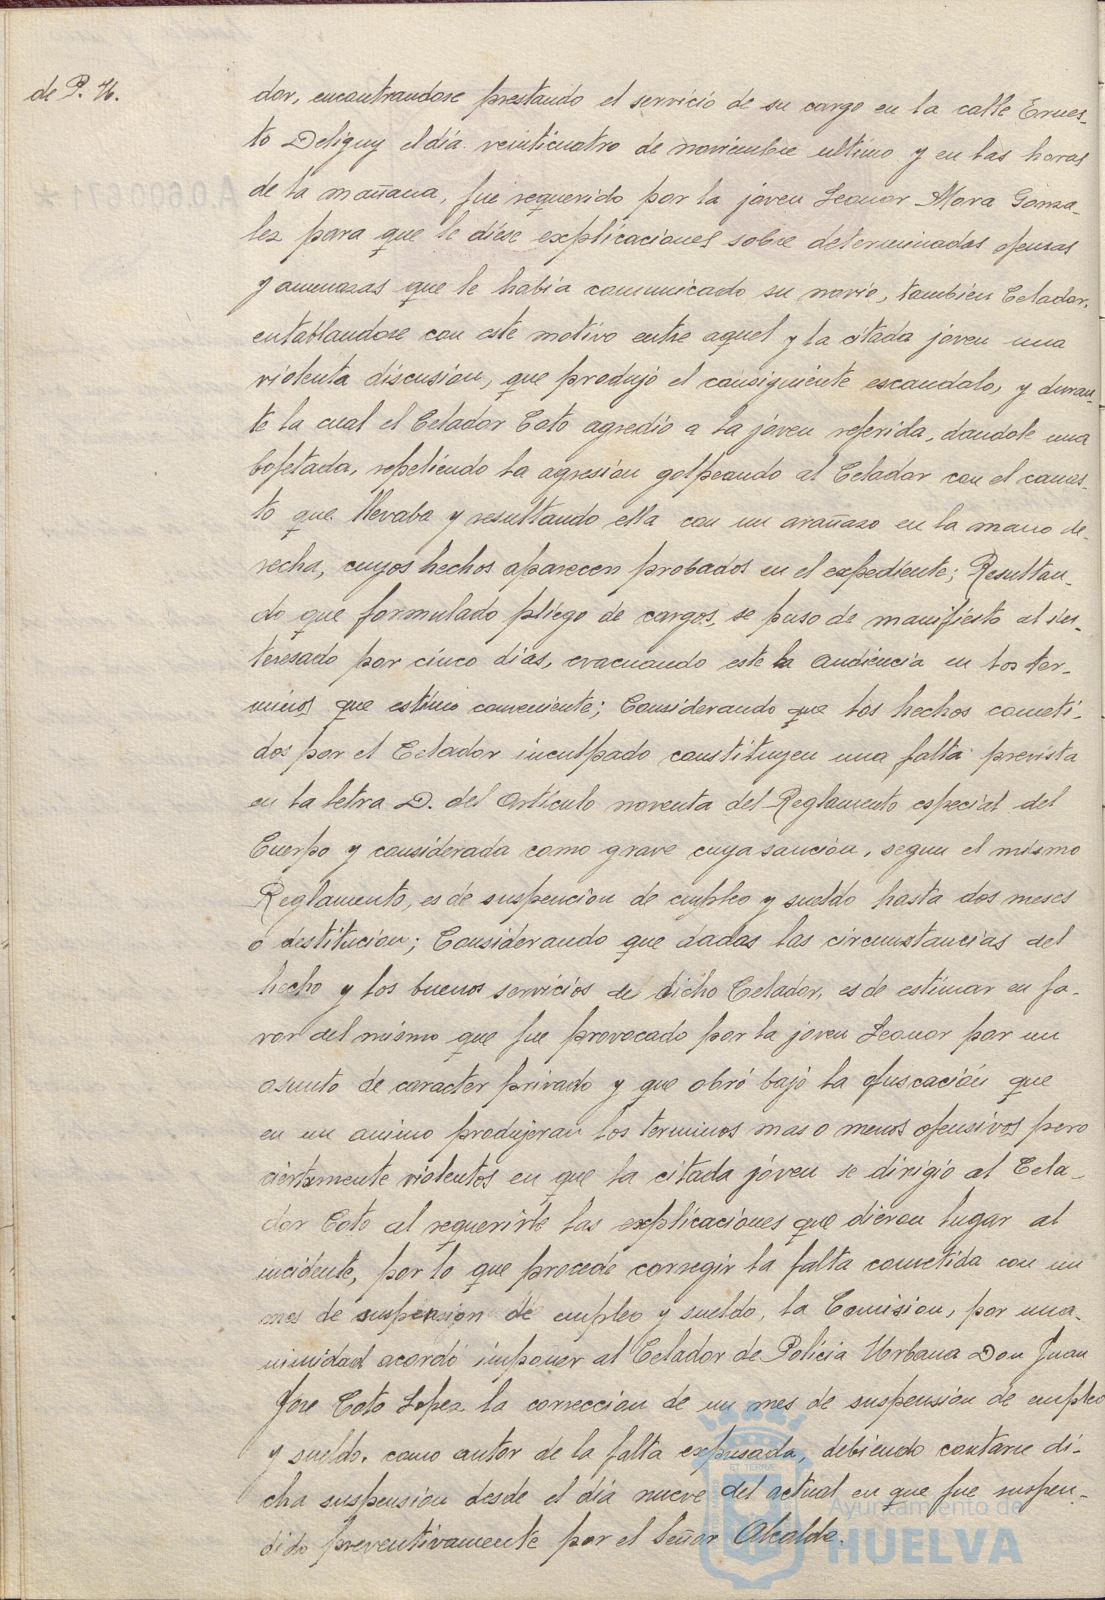 de P. U.
dor, encontrandose prestando el servicio de su cargo en la calle Ernes-
to Deligny el dia veinticuatro de noviembre ultimo y en las horas
de la mañana, fue requerido por la joven Leonor Mora Gonza-
lez para que le diese explicaciones sobre determinadas ofensas
y amenazas que le habia comunicado su novio, tambien Celador,
entablandose con este motivo entre aquel y la citada joven una
violenta discusion, que produjo el consiguiente escandalo, y duran-
te la cual el Celador Coto agredió a la joven referida, dandole una
bofetada, repeliendo la agresion golpeando al Celador con el canas-
to que llevaba y resultando ella con un arañazo en la mano de-
recha, cuyos hechos aparecen probados en el expediente; Resultan-
do que formulado pliego de cargos, se puso de manifiesto al in-
teresado por cinco dias, evacuando este la audiencia en los ter-
minos que estimó conveniente; Considerando que los hechos cometi-
dos por el Celador inculpado constituyen una falta prevista
en la letra D. del articulo noventa del Reglamento especial del
Cuerpo y considerada como grave cuya sancion, segun el mismo
Reglamento, es de suspencion de empleo y sueldo hasta dos meses
o destitucion; Considerando que dadas las circunstancias del
hecho y los buenos servicios de dicho Celador, es de estimar en fa-
vor del mismo que fue provocado por la joven Leonor por un
asunto de caracter privado y que obró bajo la ofuscación que
en un animo produjeran los terminos mas o menos ofensivos pero
ciertamente violentos en que la citada jóven se dirigió al Cela-
dor Coto al requerirle las explicaciones que dieron lugar al
incidente, por lo que procede corregir la falta cometida con un
mes de suspension de empleo y sueldo, la Comision, por una-
nimidad acordó imponer al Celador de Policia Urbana Don Juan
Jose Coto Lopez la correccion de un mes de suspension de empleo
y sueldo, como autor de la falta expresada, debiendo contarse di-
cha suspension desde el dia nueve del actual en que fue suspen-
dido preventivamente por el Señor Alcalde.
Ayuntamiento de
HUELVA